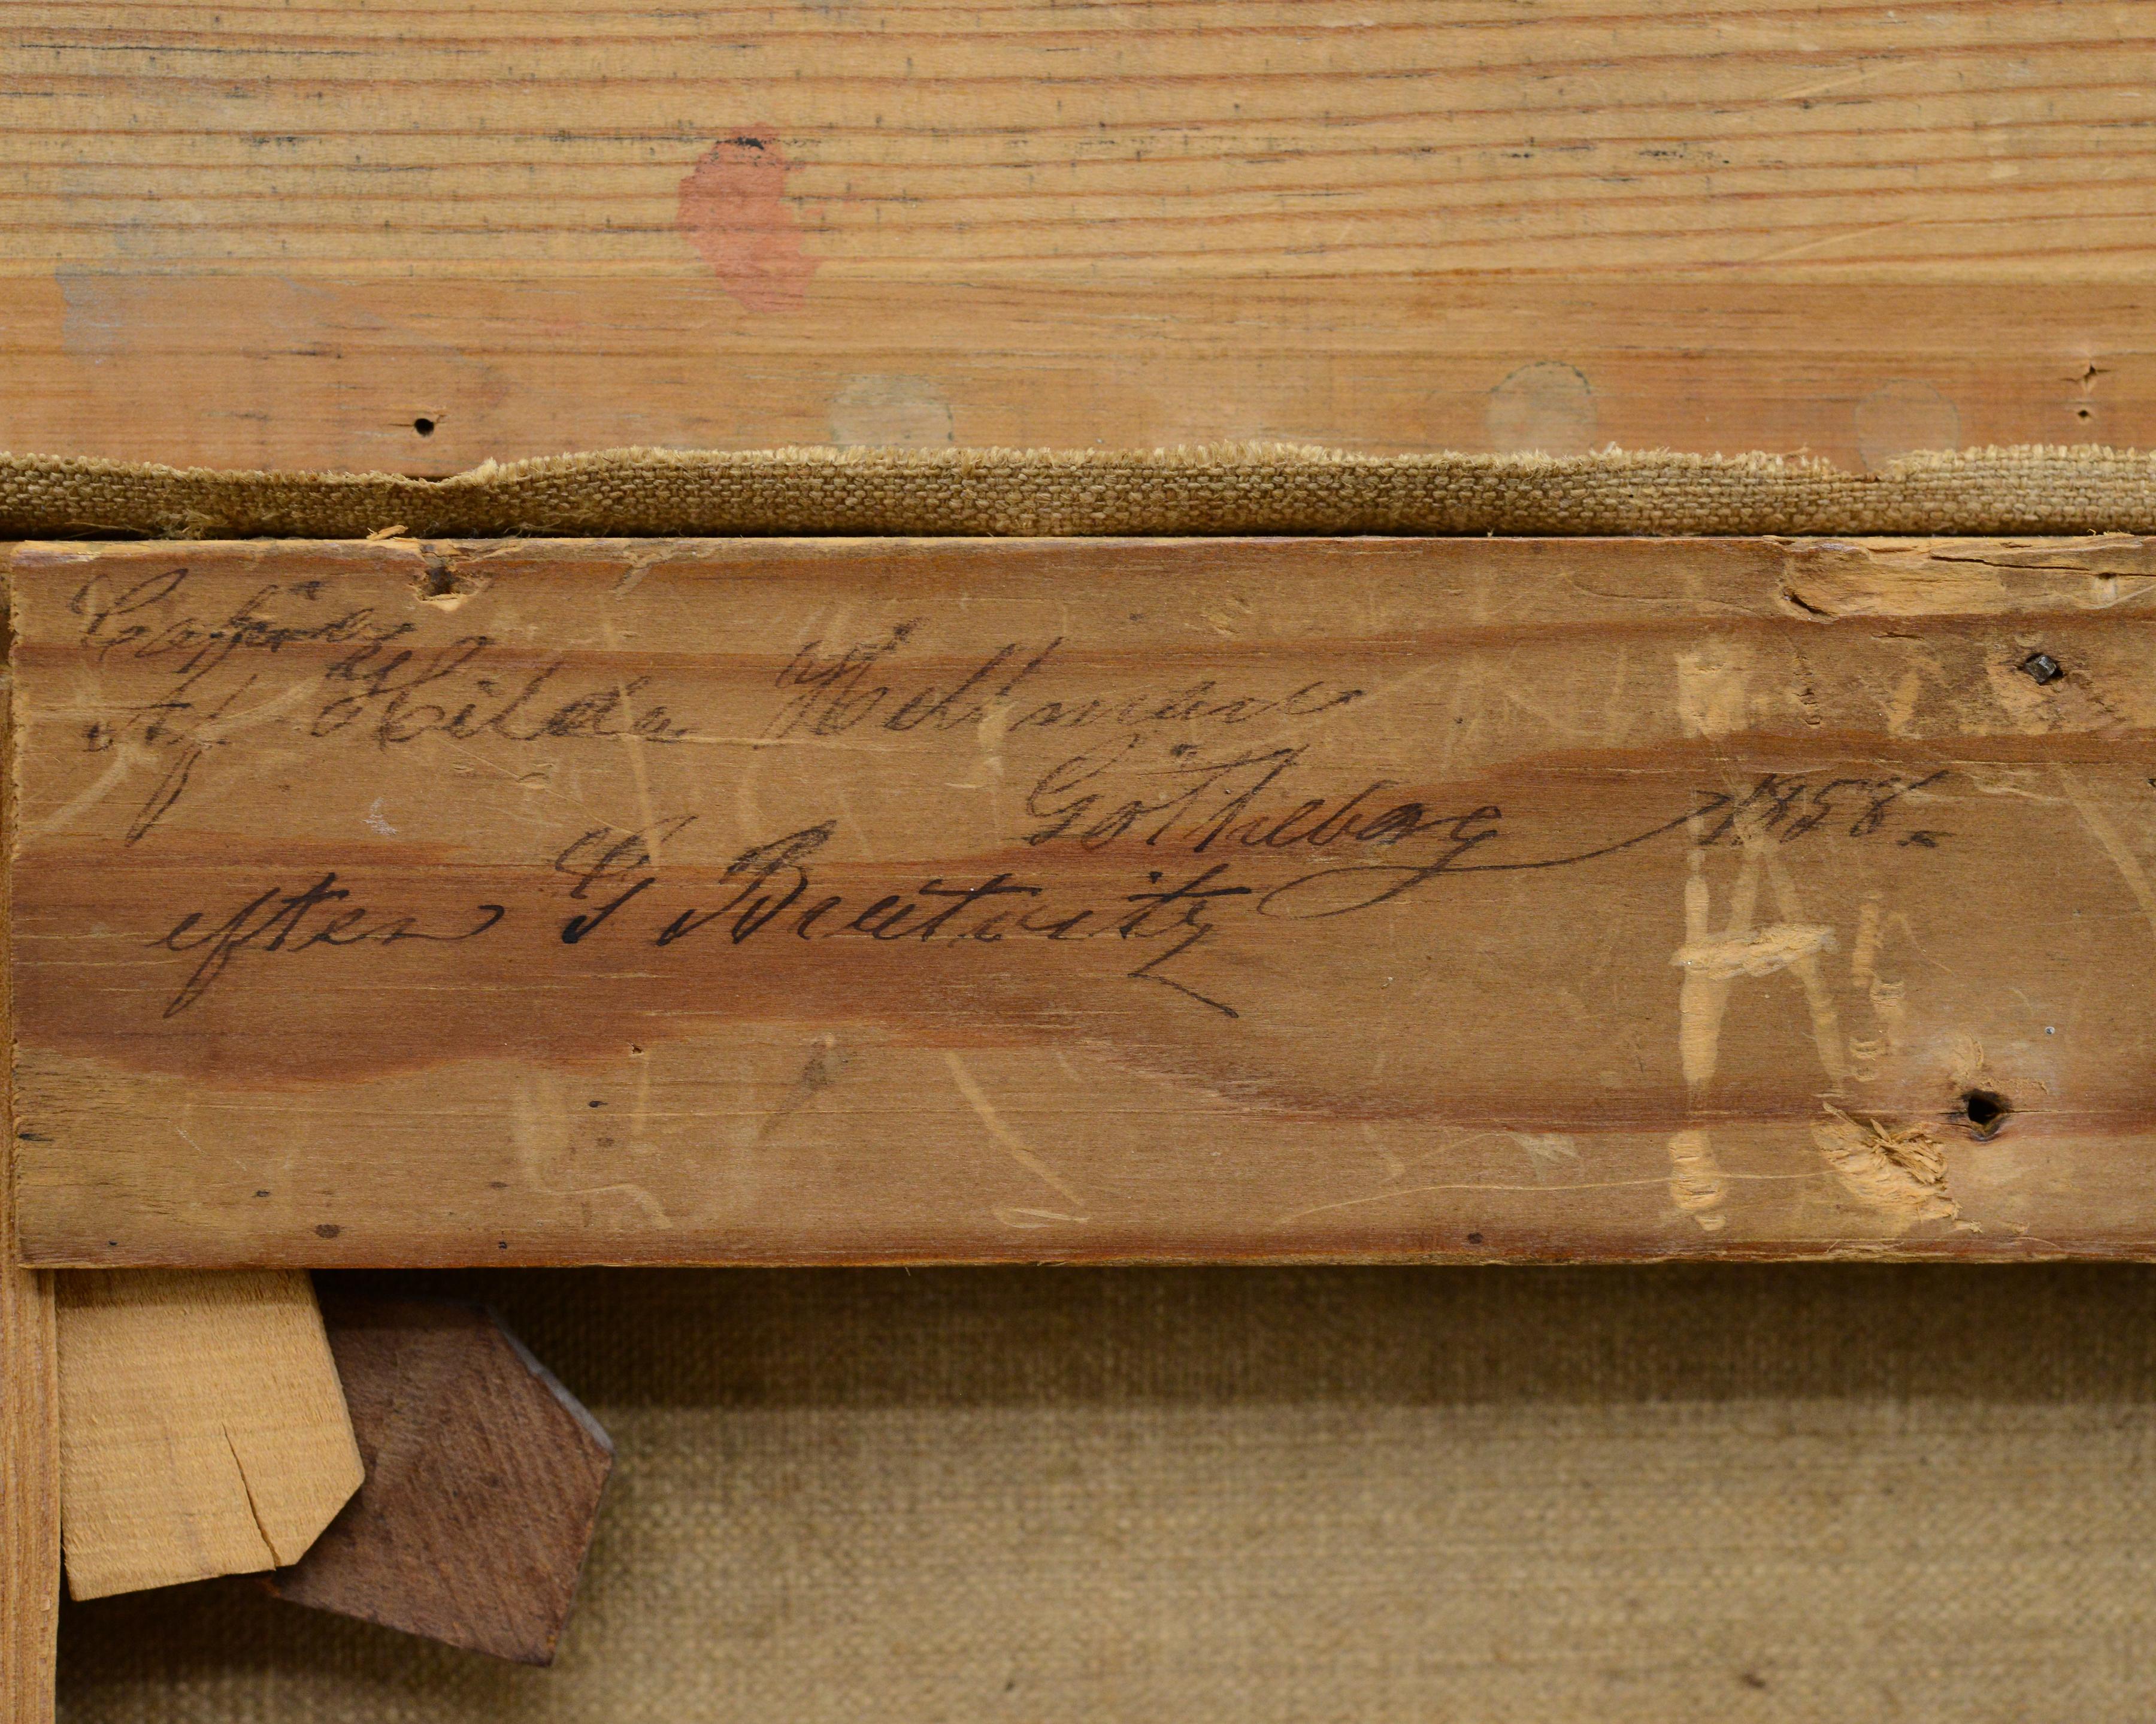 Copiera
Af Hilda Hellman
Götheborg 1858.
efter G Brautvitz